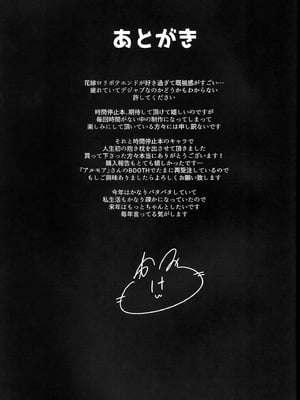 あとがき
花嫁ロリボテエンドが好き過ぎて既視感がすごい…
疲れていてデジャブなのかどうかもわからない
許してください
時間停止本、期待して頂けて嬉しいのですが
毎回時間がない中の制作になってしまって
楽しみにして頂いている方々には申し訳ないです
それと時間停止本のキャラで
人生初の抱き枕を出させて頂きました
買って下さった方々本当にありがとうございます！
購入報告もとても嬉しかったです…
『アルモア』さんのBOOTHでたまに再受注しているので
もしご興味ありましたらよろしくお願い致します
今年はかなりバタバタしていて
私生活もかなり疎かになっていたので
来年はもっとちゃんとしたいです
毎年言ってる気がします